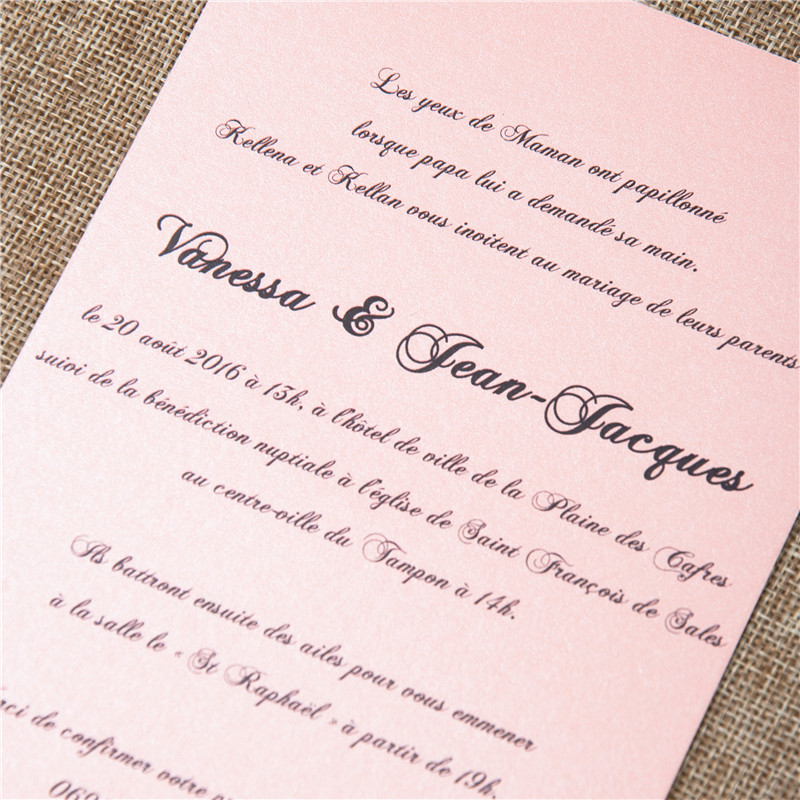 Les yeux de Maman ont papillonné
lorsque papa lui a demandé sa main.
Kellena et Kellan vous invitent au mariage de leurs parents
Vanessa & Jean-Jacques
le 20 août 2016 à 13h, à l'hôtel de ville de la Plaine des Cafres
suivi de la bénédiction nuptiale à l'église de Saint François de Sales
au centre-ville du Tampon à 14h.
Ils battront ensuite des ailes pour vous emmener
à la salle le « St Raphaël » à partir de 19h.
de confirmer votre